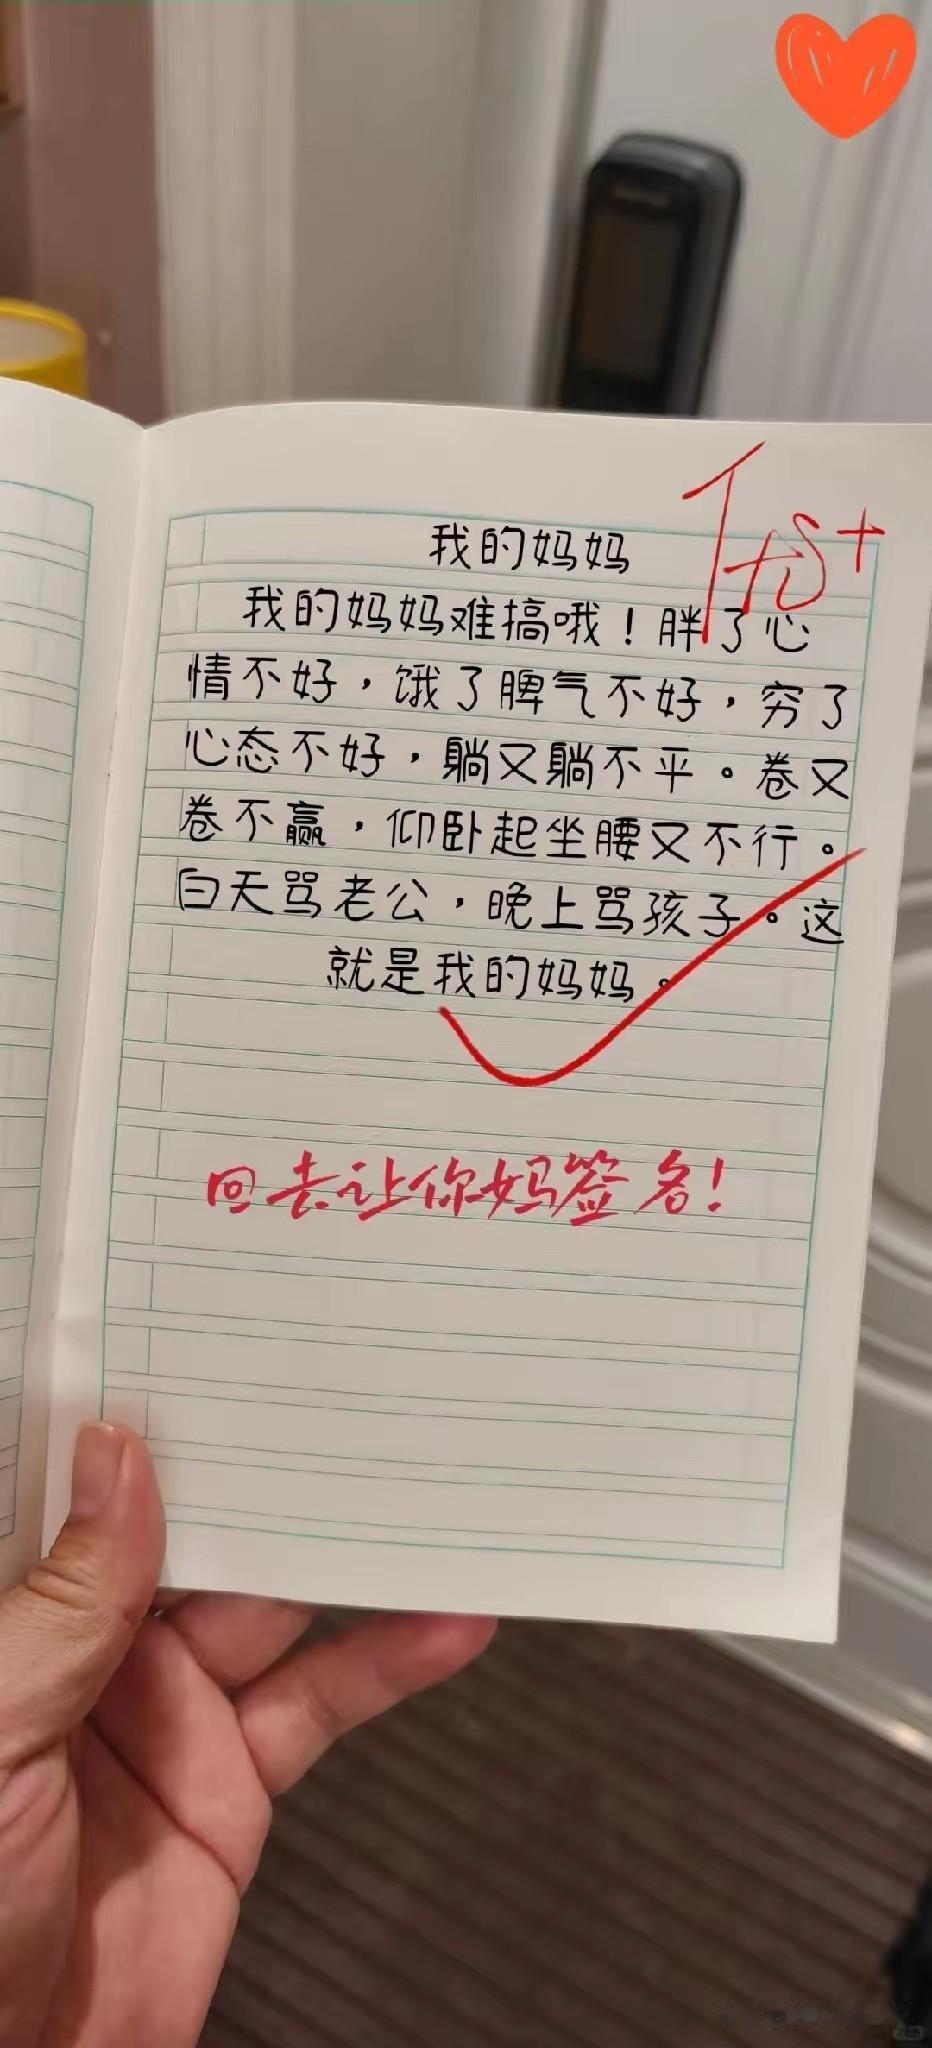 我的妈妈
优+
我的妈妈难搞哦！胖了心
情不好，饿了脾气不好，穷了
心态不好，躺又躺不平。卷又
卷不赢，仰卧起坐腰又不行。
白天骂老公，晚上骂孩子。这
就是我的妈妈。
回去让你妈签名！